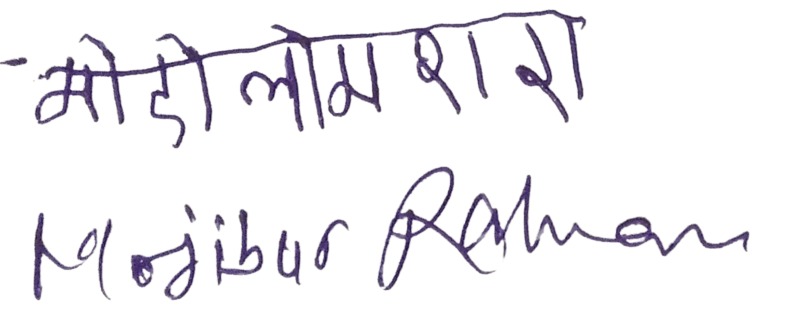 मोहो लोमशश
Mojibur Rahman